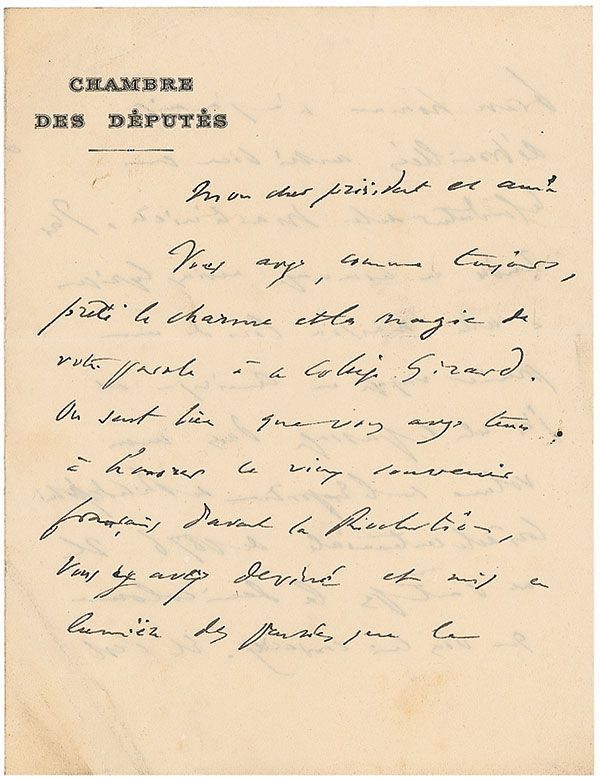 CHAMBRE
DES DÉPUTÉS
Mon cher président et ami
Vous avez, comme toujours,
prêté le charme et la magie de
votre parole à ce Collège Girard.
On sent bien que vous avez tenu
à honorer ce vieux souvenir
français d'avant la Révolution,
Vous y avez deviné et mis en
lumière des pensées que le